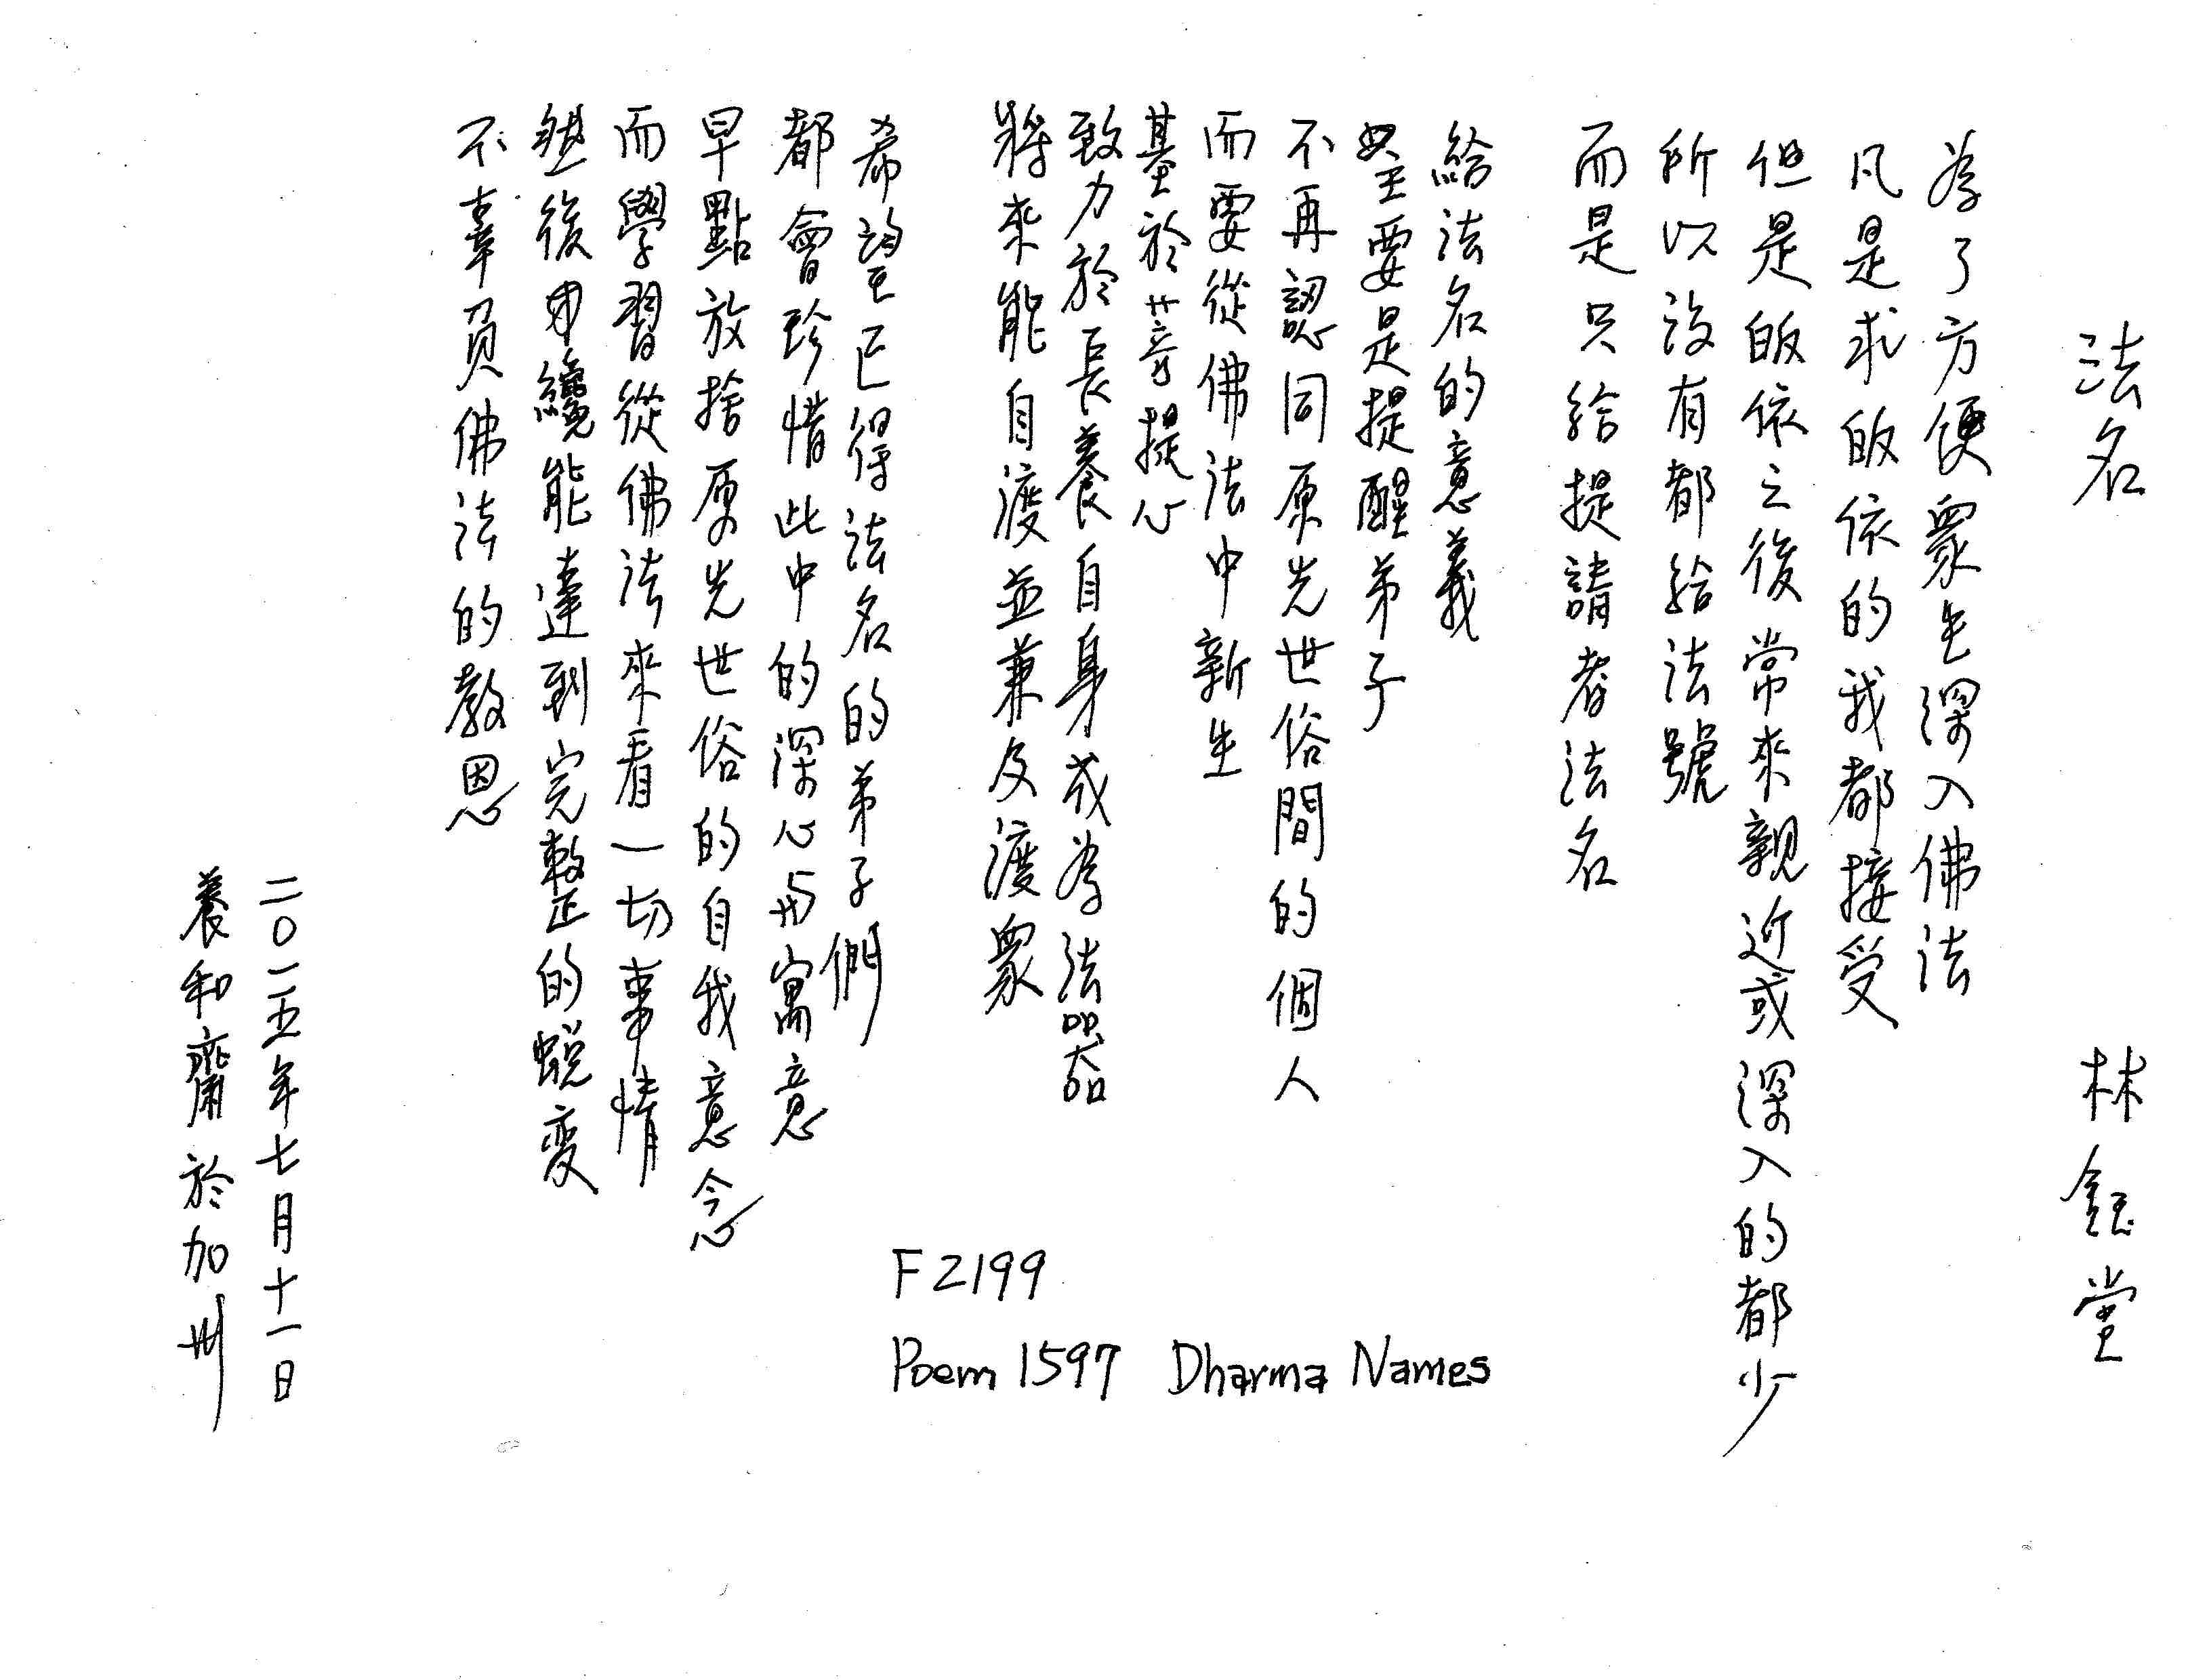 法名 林鈺堂
為了方便眾生深入佛法
凡是求皈依的我都接受
但是皈依之後常來親近或深入的都少
所以沒有都給法號
而是只給提請者法名
給法名的意義
主要是提醒弟子
不再認同原先世俗間的個人
而要從佛法中新生
基於菩提心
致力於長養自身成為法器
將來能自渡並兼及渡眾
希望已得法名的弟子們
都會珍惜此中的深心與寓意
早點放捨原先世俗的自我意念
而學習從佛法來看一切事情
然後纔能達到完整的蛻變
不辜負佛法的教恩
二〇一五年七月十一日
養和齋於加州
F2199
Poem 1597 Dharma Names